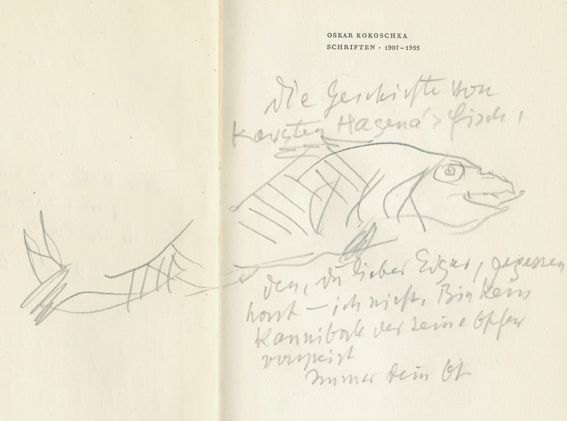 OSKAR KOKOSCHKA
SCHRIFTEN · 1907–1955
Die Geschichte von
Karsten Hagena's Fisch,
den, du lieber Edgar, gegessen
hast – ich nicht. Bin kein
Kannibale der seine Opfer
verspeist
Immer Dein OK